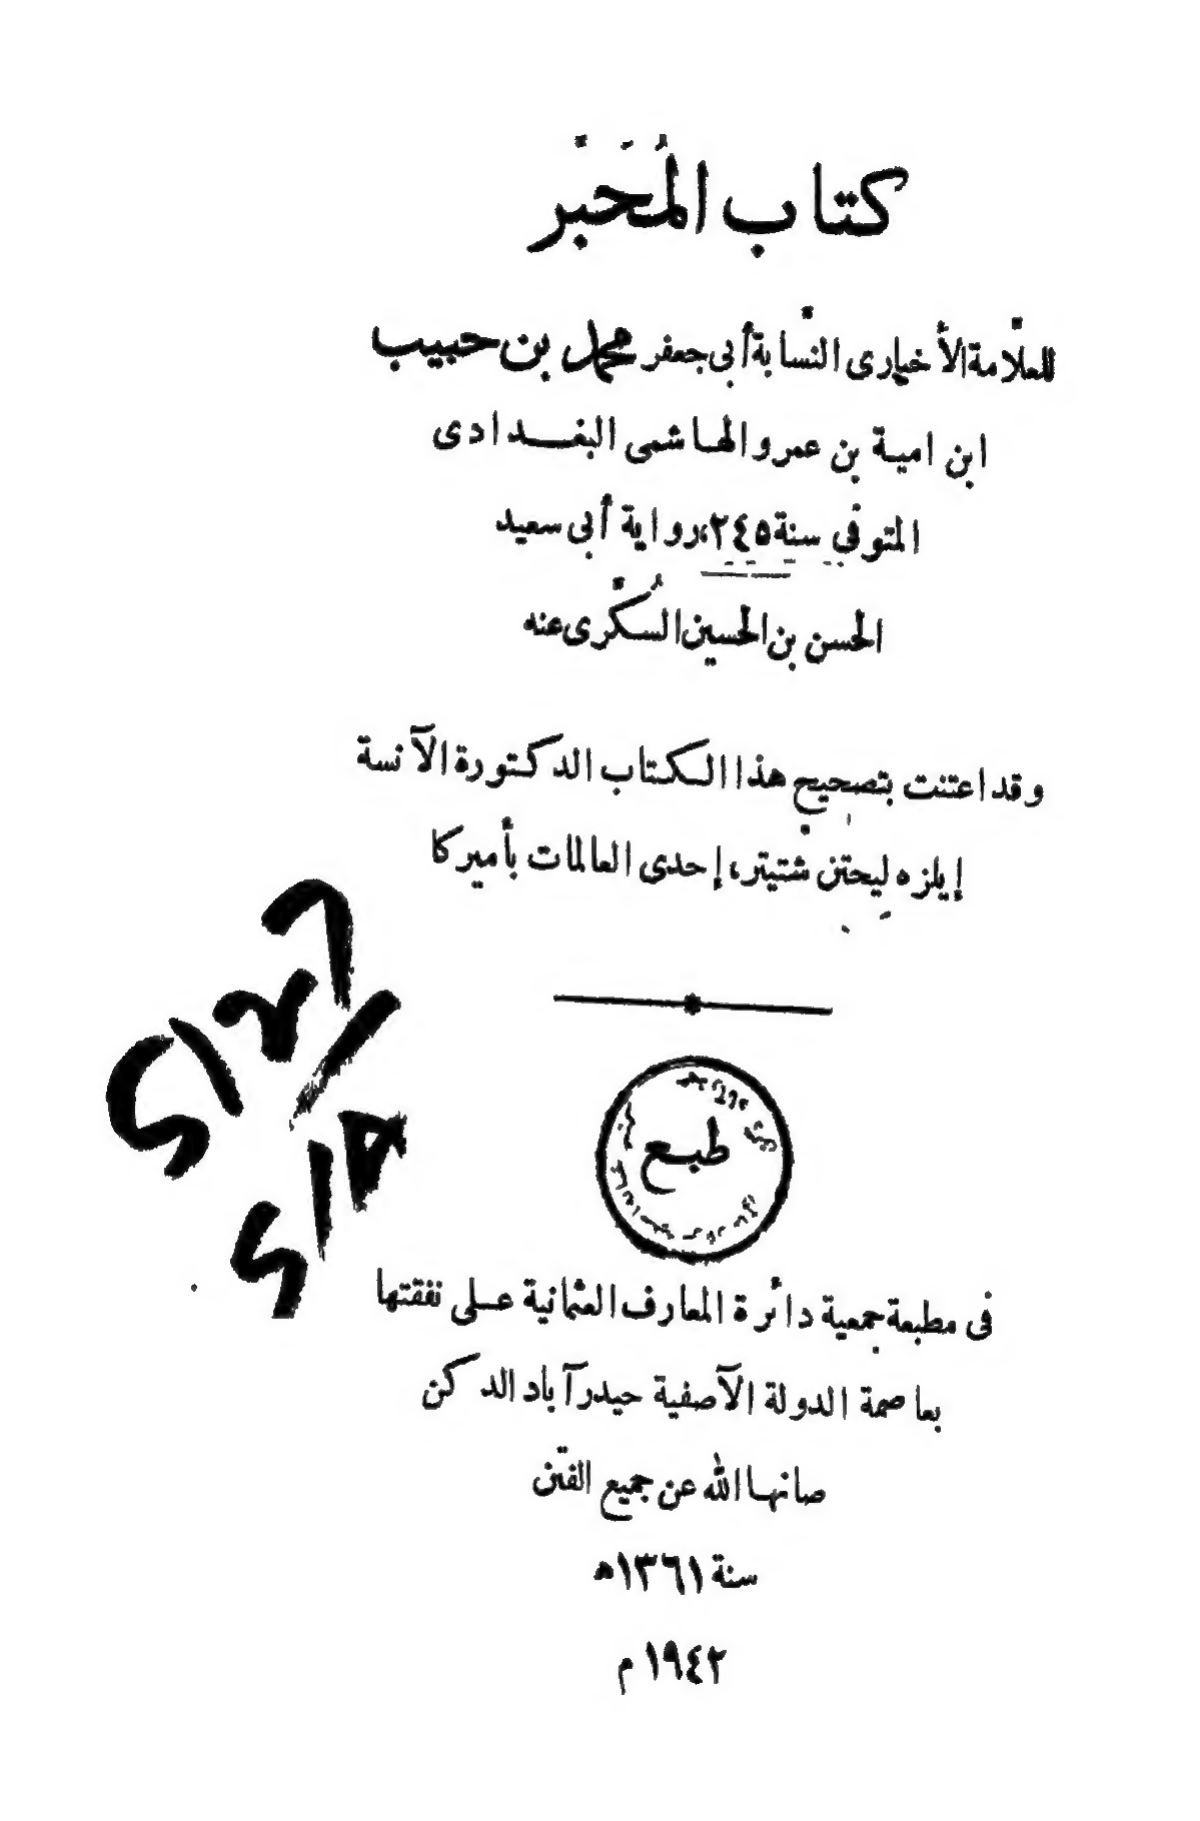 كتاب المُحَبَّر
للعلّامة الأخبارى النسّابة أبى جعفر محمد بن حبيب
ابن امية بن عمرو الهاشمى البغدادى
المتوفى سنة ٢٤٥، رواية أبى سعيد
الحسن بن الحسين السُكّرى عنه
وقد اعتنت بتصحيح هذا الكتاب الدكتورة الآنسة
إيلزه ليحتن شتيتر، إحدى العالمات بأميركا
طبع
فى مطبعة جمعية دائرة المعارف العثمانية على نفقتها
بعاصمة الدولة الآصفية حيدرآباد الدكن
صانها الله عن جميع الفتن
سنة ١٣٦١ھ
١٩٤٢ م